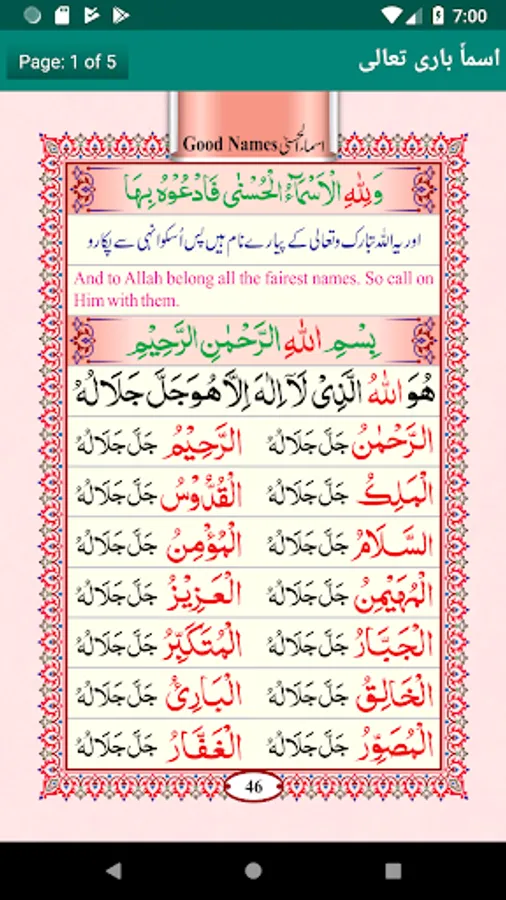 7:00
Page: 1 of 5
اسماً باری تعالی
Good Names اسماء الحسنیٰ
وَلِلّٰهِ الْاَسْمَآءُ الْحُسْنٰی فَادْعُوْهُ بِهَا
اور یہ اللہ تبارک وتعالی کے پیارے نام ہیں پس اُسکو انہی سے پکارو
And to Allah belong all the fairest names. So call on
Him with them.
بِسْمِ اللهِ الرَّحْمٰنِ الرَّحِيْمِ
هُوَ اللهُ الَّذِیْ لَآ اِلٰهَ اِلَّا هُوَ جَلَّ جَلَالُهٗ
الرَّحْمٰنُ جَلَّ جَلَالُهٗ الرَّحِيْمُ جَلَّ جَلَالُهٗ
الْمَلِكُ جَلَّ جَلَالُهٗ الْقُدُّوْسُ جَلَّ جَلَالُهٗ
السَّلَامُ جَلَّ جَلَالُهٗ الْمُؤْمِنُ جَلَّ جَلَالُهٗ
الْمُهَيْمِنُ جَلَّ جَلَالُهٗ الْعَزِيْزُ جَلَّ جَلَالُهٗ
الْجَبَّارُ جَلَّ جَلَالُهٗ الْمُتَكَبِّرُ جَلَّ جَلَالُهٗ
الْخَالِقُ جَلَّ جَلَالُهٗ الْبَارِئُ جَلَّ جَلَالُهٗ
الْمُصَوِّرُ جَلَّ جَلَالُهٗ الْغَفَّارُ جَلَّ جَلَالُهٗ
46